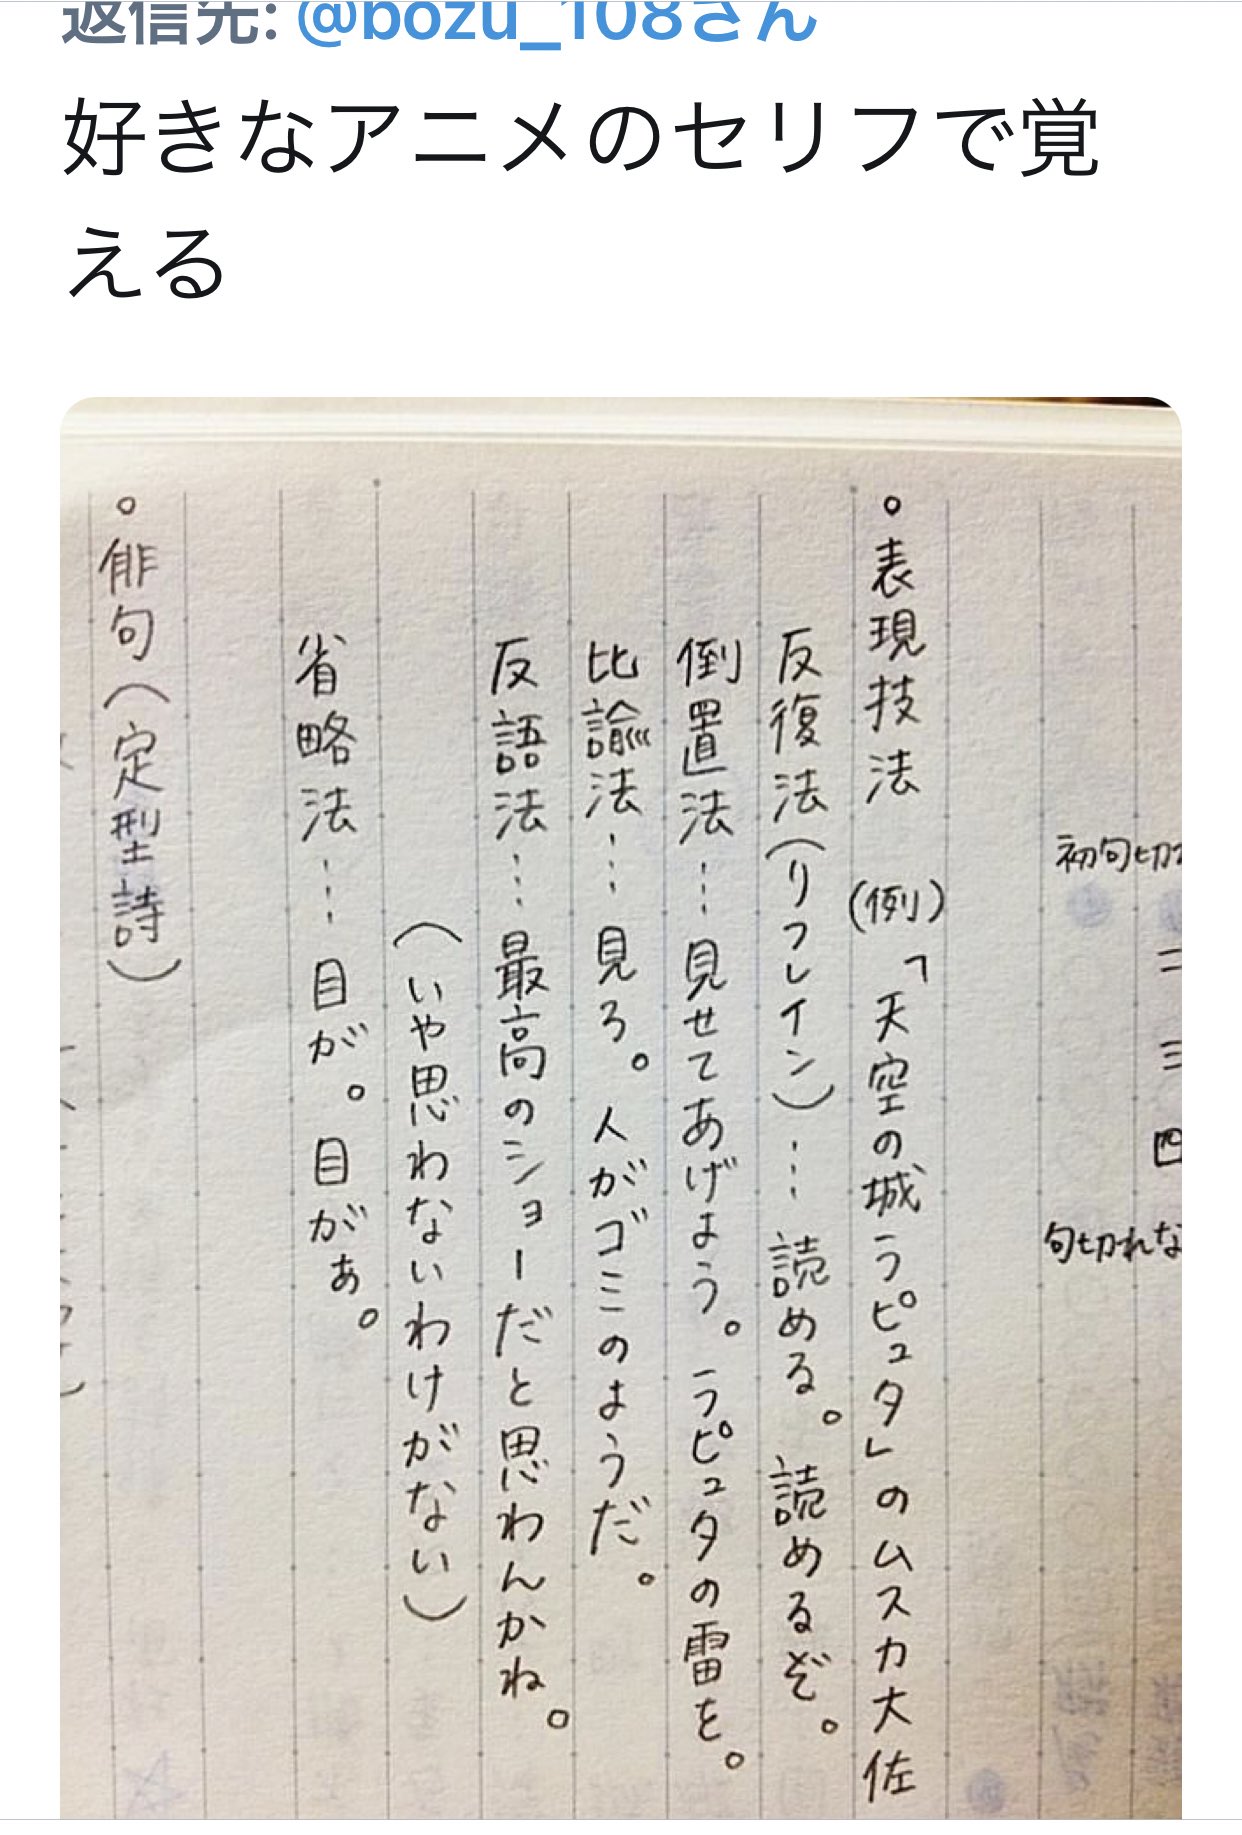 返信先: @bozu_108さん
好きなアニメのセリフで覚
える
初句切
二
三
四
句切れな
。表現技法 (例)「天空の城ラピュタ」のムスカ大佐
反復法(リフレイン)… 読める。読めるぞ。
倒置法… 見せてあげよう。ラピュタの雷を。
比諭法… 見ろ。人がゴミのようだ。
反語法… 最高のショーだと思わんかね。
(いや思わないわけがない)
省略法… 目が。目がぁ。
。俳句(定型詩)